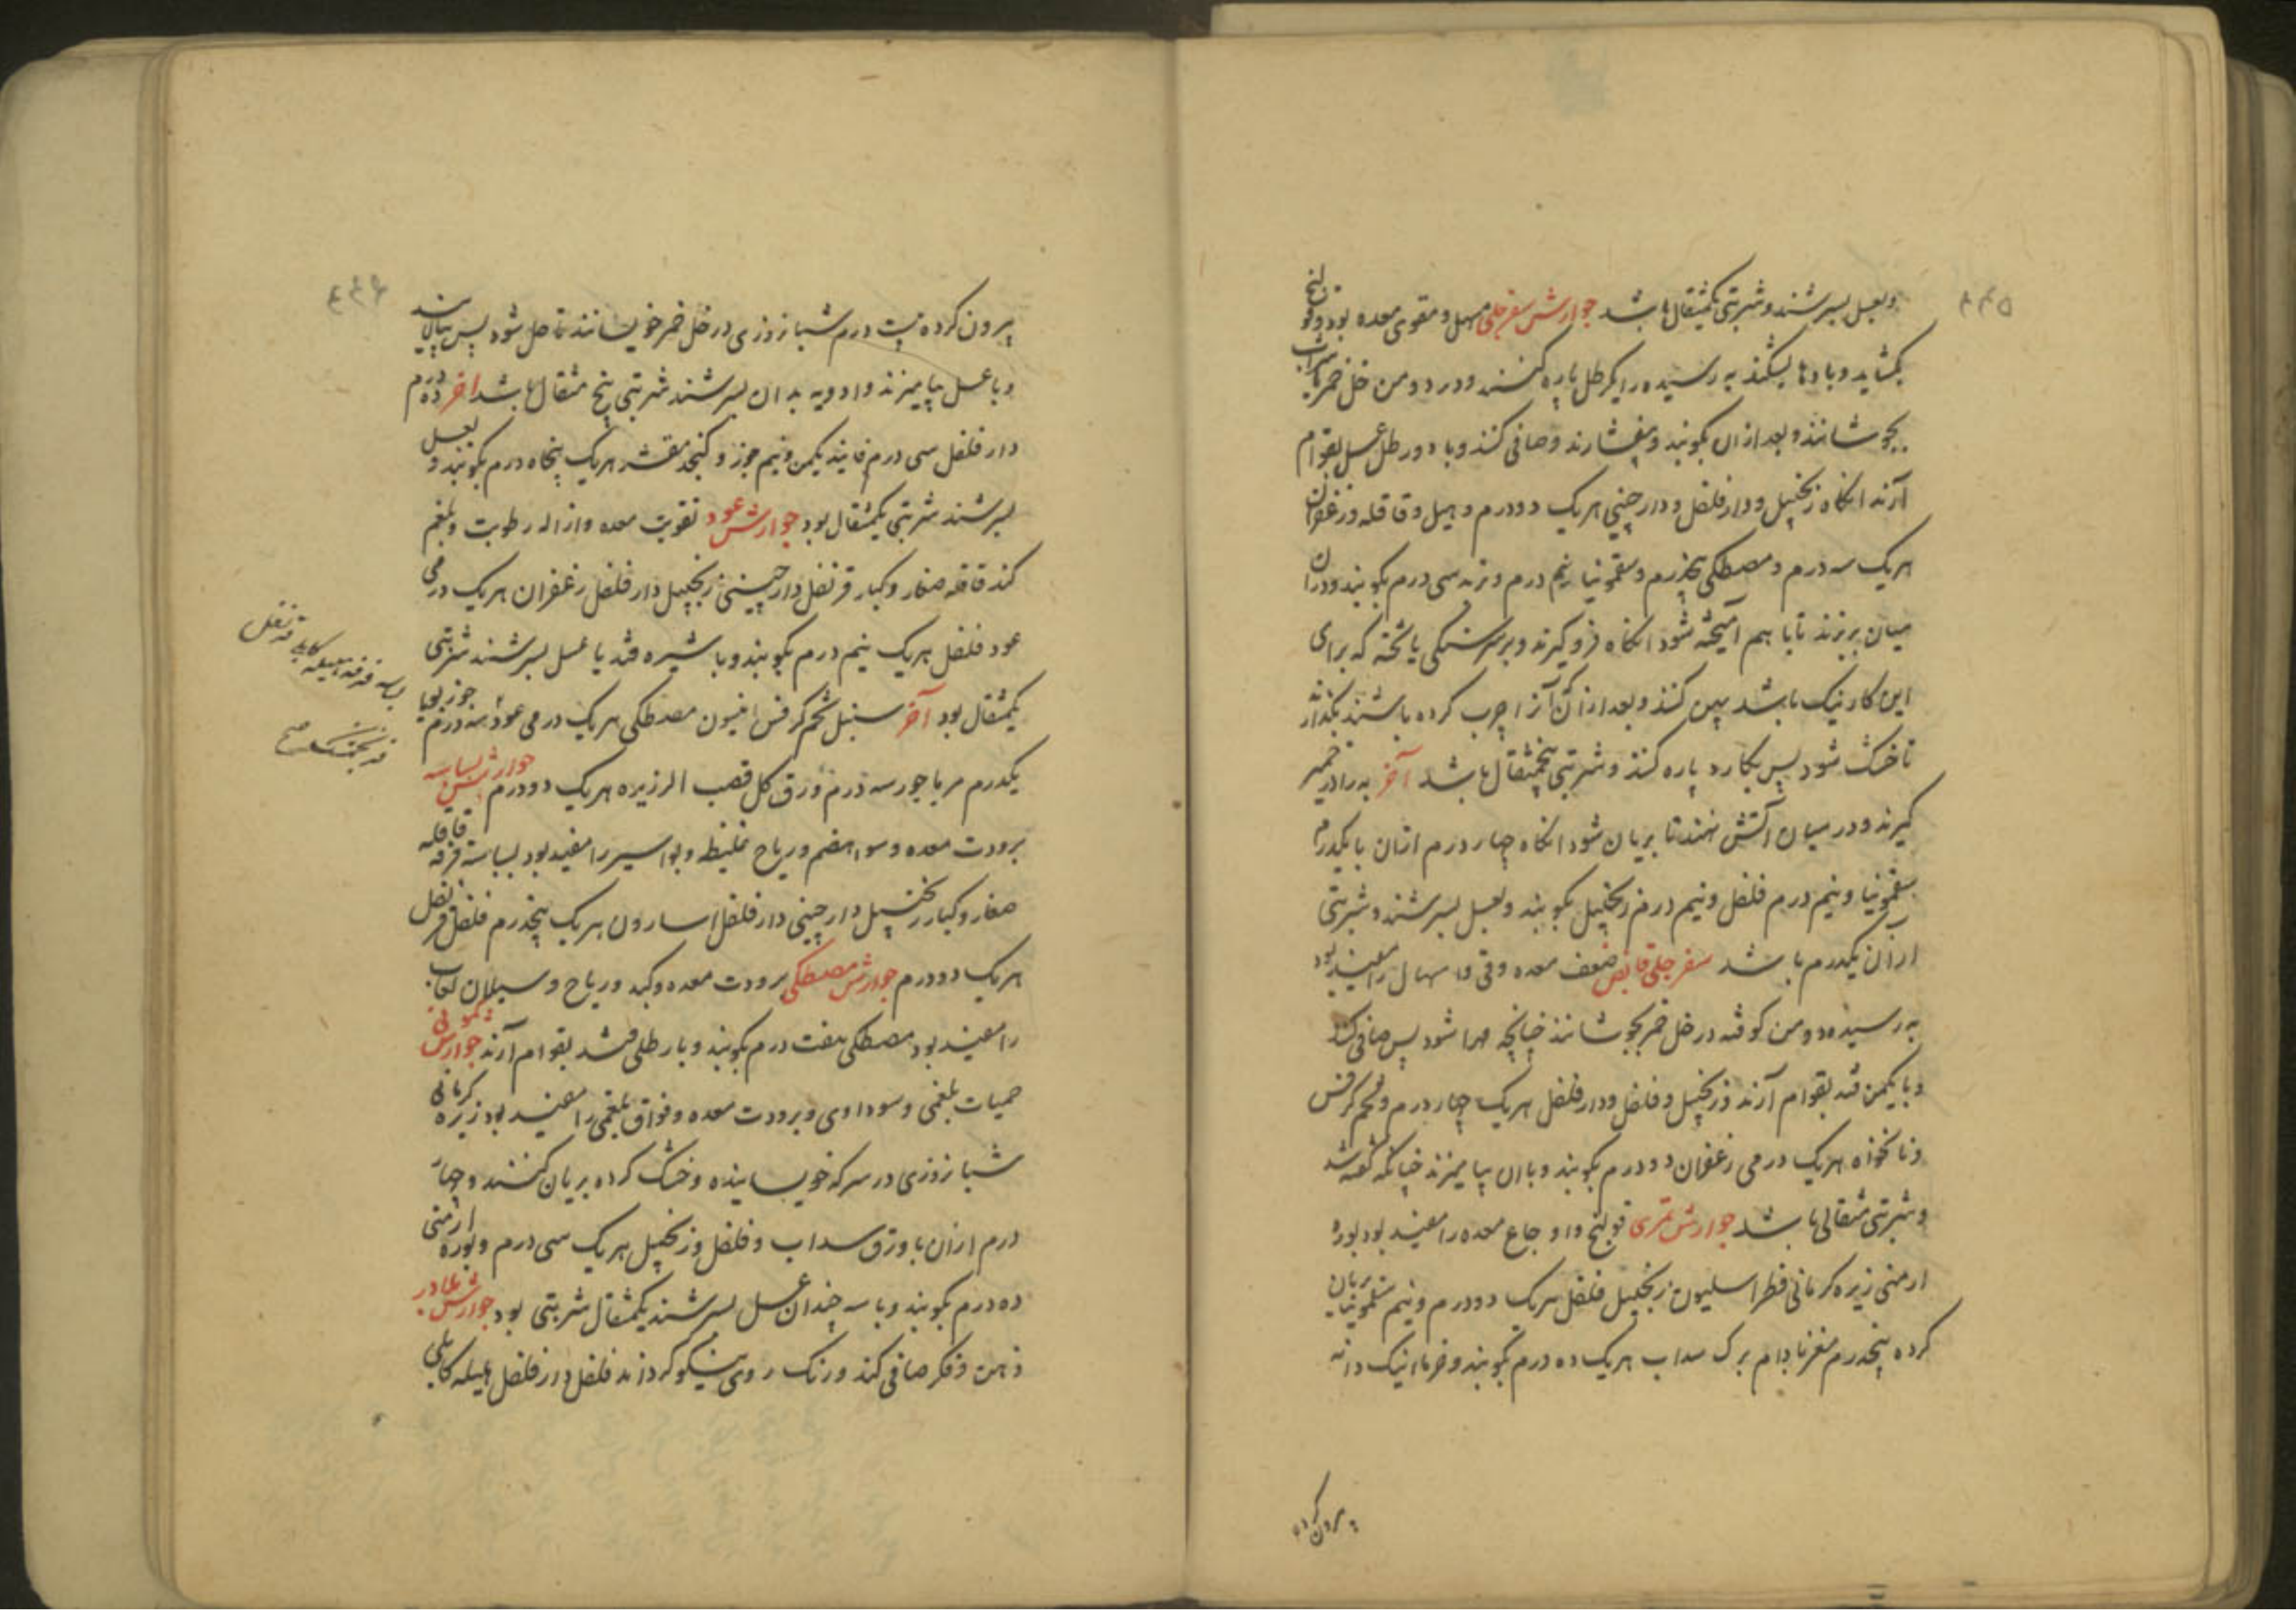 ۴۴۵
وبعسل بسرشند و شربتی یکمثقال باشد جوارش سفرجلی مسهل و مقوی معده بود و قولنج
بکشاید و بادها بشکند به رسیده را یکرطل پاره کنند و در دو من خل خمر یا شراب
بجوشانند و بعد از ان بکوبند و بیفشارند و صافی کنند و با دو رطل عسل بقوام
آرند انکاه زنجبیل و دارفلفل و دارچینی هریک دو درم و هیل و قاقله و زعفران
هریک سه درم و مصطکی پنجدرم و سقمونیا پنج درم و تربد سی درم بکوبند و در ان
میان بریزند تا با هم آمیخته شود انکاه فرو کیرند و بر سنکی یا تخته که برای
این کار نیک باشد پهن کنند و بعد از آن که آنرا چرب کرده باشند بکذارند
تا خشک شود پس بکارد پاره کنند و شربتی پنجمثقال باشد آخر به را در خمیر
کیرند و در میان آتش نهند تا بریان شود انکاه چهار درم ازان با یکدرم
سقمونیا و نیم درم فلفل و نیم درم زنجبیل بکوبند و بعسل بسرشند و شربتی
ازان یکدرم باشد سفرجلی قابض ضعف معده و قی و اسهال را مفید بود
به رسیده دو من کوفته در خل خمر بجوشانند چنانچه مهرا شود پس صافی کنند
و با یکمن قند بقوام آرند و زنجبیل و فلفل و دارفلفل هریک چهار درم و تخم کرفس
و نانخواه هریک درمی زعفران دو درم بکوبند و بان بیامیزند چنانکه کفته شد
و شربتی مثقالی باشد جوارش تمری قولنج و اوجاع معده را مفید بود بوره
ارمنی زیره کرمانی فطراسلیون زنجبیل فلفل هریک دو درم و نیم سقمونیا بریان
کرده پنجدرم مغز بادام برک سداب هریک ده درم بکوبند و خرما نیک دانه
بیرون کرده
۴۴۶
بیرون کرده بیست درم شبانروزی در خل خمر خویسانند تا حل شود پس بپالایند
و با عسل بیامیزند و ادویه بدان بسرشند شربتی پنج مثقال باشد اخر ده درم
دارفلفل سی درم فانید یکمن و نیم جوز و کنجد مقشر هریک پنجاه درم بکوبند و بعسل
بسرشند شربتی یکمثقال بود جوارش عود تقویت معده و ازاله رطوبت و بلغم
کند قاقله صغار و کبار قرنفل دارچینی زنجبیل دارفلفل زعفران هریک درمی
عود فلفل هریک نیم درم بکوبند و با شیره قند یا عسل بسرشند شربتی
یکمثقال بود آخر سنبل تخم کرفس انیسون مصطکی هریک درمی عود سه درم جوز بویا
یکدرم مرباجور سه درم ورق کل قصب الزریره هریک دو درم جوارش بسباسه
برودت معده و سوء هضم و ریاح غلیظ و بواسیر را مفید بود بسباسه قرفه قاقله
صغار و کبار زنجبیل دارچینی دارفلفل اسارون هریک پنجدرم فلفل قرنفل
هریک دو درم جوارش مصطکی برودت معده و کبد و ریاح و سیلان لعاب
را مفید بود مصطکی هفت درم بکوبند و با رطلی قند بقوام آرند جوارش کمونی
حمیات بلغمی و سوداوی و برودت معده و فواق بلغمی را مفید بود زیره کرمانی
شبانروزی در سرکه خویسانیده و خشک کرده بریان کنند و چهار
درم ازان با ورق سداب و فلفل و زنجبیل هریک سی درم و بوره ارمنی
ده درم بکوبند و با سه چندان عسل بسرشند یکمثقال شربتی بود جوارش بلادر
ذهن و فکر صافی کند و رنک روی نیکو کرداند فلفل دارفلفل هلیله کابلی
بسباسه قرفه هلیله کابلی قرنفل